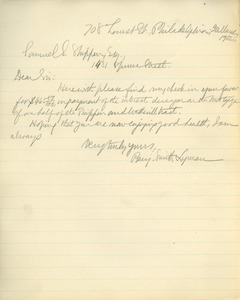 708 Locust St. Philadelphia,
Samuel S. Esq.,
Spruce Street
Dear Sir:
Herewith please find my check in your favor
for in payment of the interest due you on the mortgage
of one half of the and tract.
Hoping that you are now enjoying good health, I am
always
Very truly yours,
Benj. Smith Lyman.